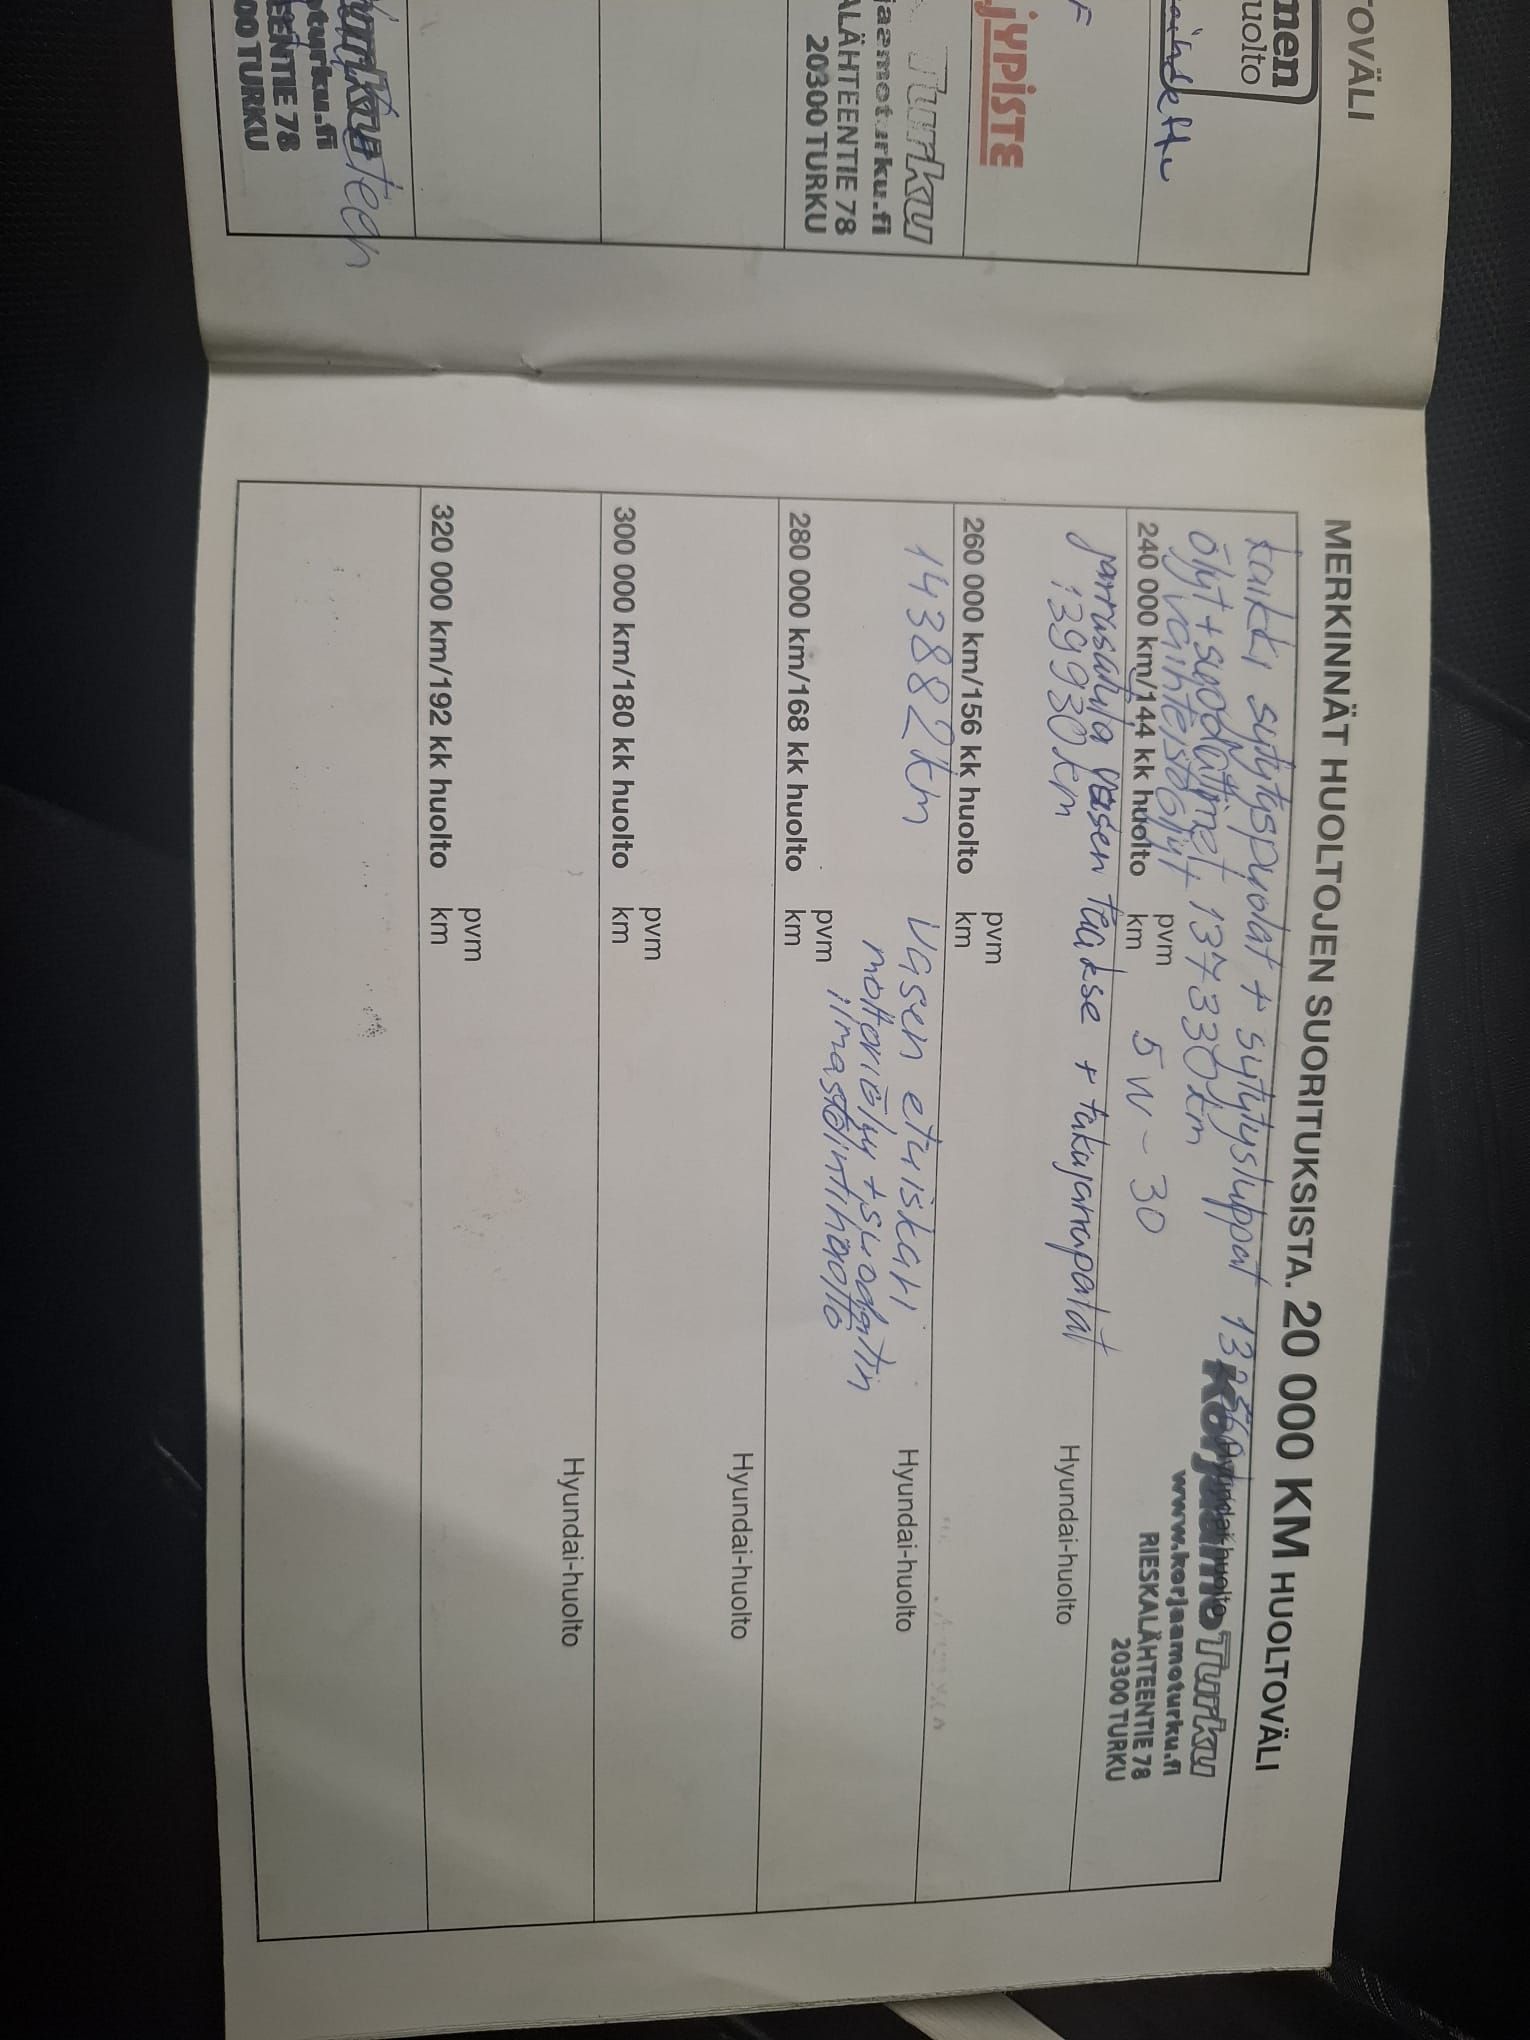 TOVÄLI
men
uolto
JYPISTE
Turku
jaamoturku.fi
ALÄHTEENTIE 78
20300 TURKU
Turku
oturku.fi
EENTIE 78
00 TURKU
MERKINNÄT HUOLTOJEN SUORITUKSISTA. 20 000 KM HUOLTOVÄLI
kaikki sytytyspuolat + sytytystulpat
öljyt + suodattimet 137330km
vaihteistoöljyt
Hyundai-huolto
Korjaamo Turku
www.korjaamoturku.fi
RIESKALÄHTEENTIE 78
20300 TURKU
240 000 km/144 kk huolto pvm
km
5W-30
jarrusatula vasen taakse + takajarrupalat
139930km
Hyundai-huolto
260 000 km/156 kk huolto pvm
km
143882km Vasen etuiskari
moottoriöljy + suodatin
ilmastointihuolto
Hyundai-huolto
280 000 km/168 kk huolto pvm
km
Hyundai-huolto
300 000 km/180 kk huolto pvm
km
Hyundai-huolto
320 000 km/192 kk huolto pvm
km